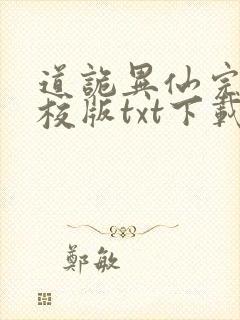 道詭異仙完
校版txt下載
鄭敏